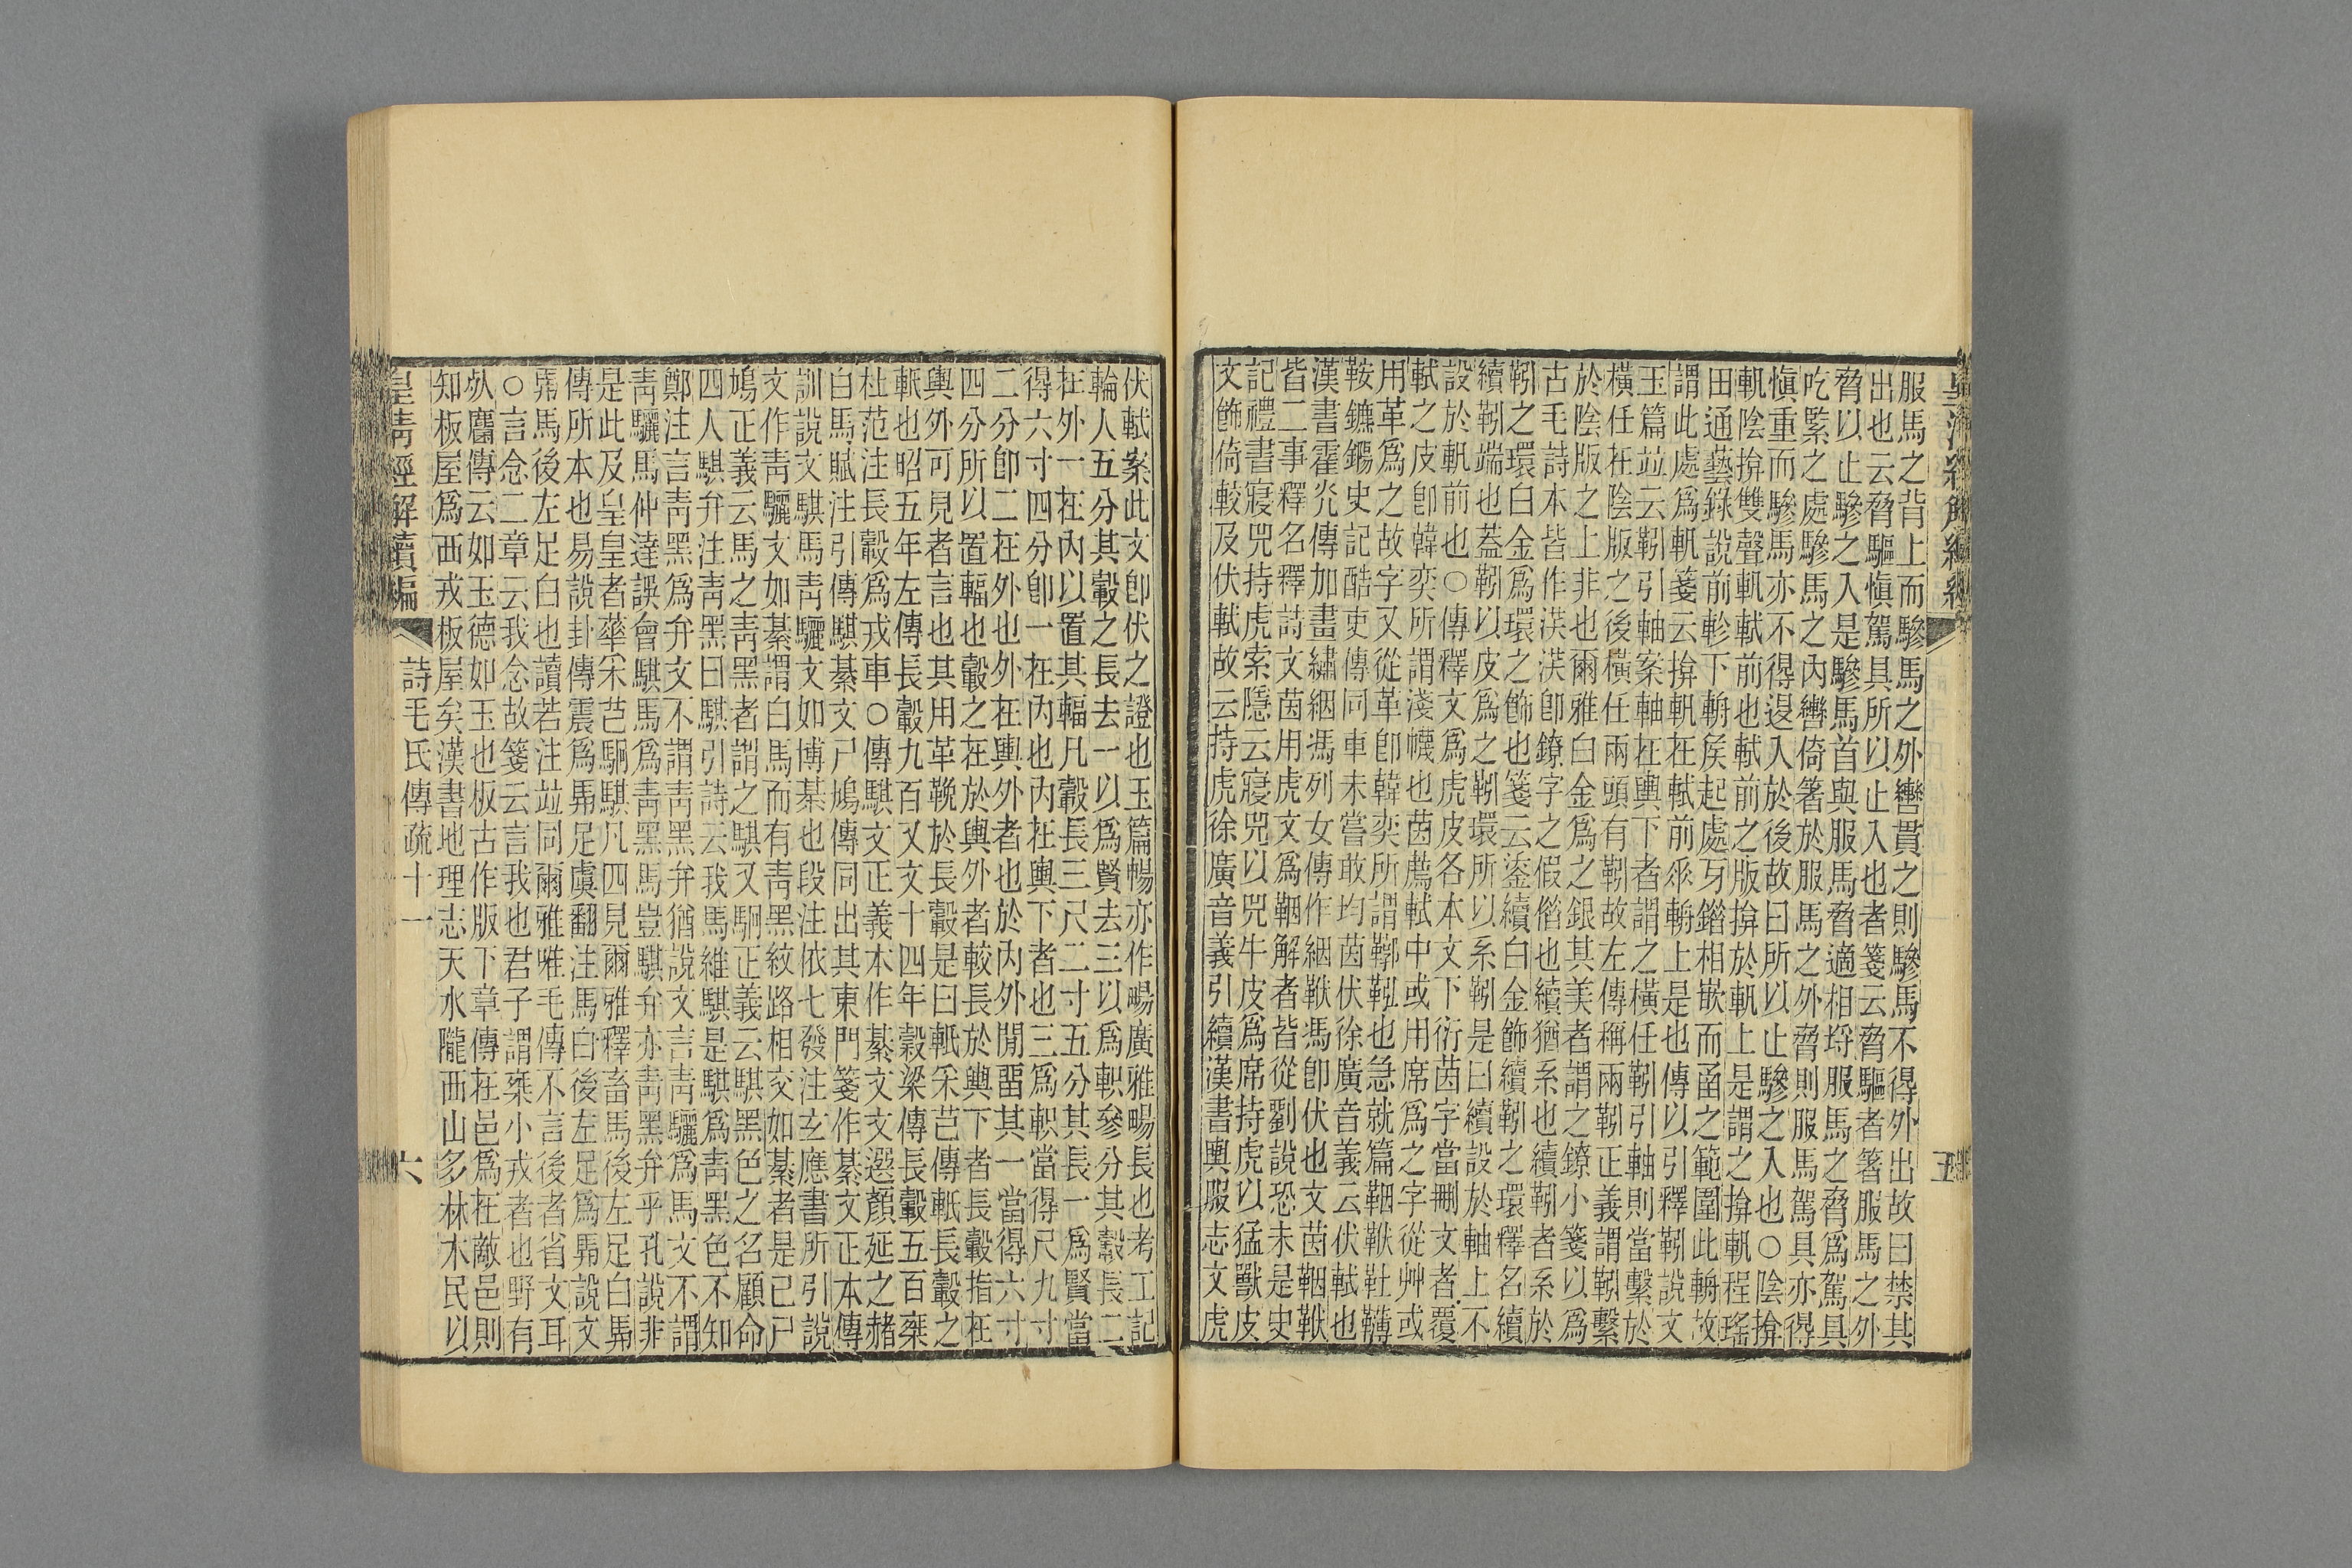 服馬之背上而驂馬之外轡貫之則驂馬不得外出故曰禁其
出也云脅驅愼駕具所以止入也者箋云脅驅者箸服馬之外
脅以止驂之入是驂馬首與服馬脅適相埒服馬之脅爲駕具
吃緊之處驂馬之內轡倚箸於服馬之外脅則服馬駕具亦得
愼重而驂馬亦不得㬹入於後故曰所以止驂之入也○陰揜
軓陰揜雙聲軓軾前也軾前之版揜於軓上是謂之揜軓程瑤
田通藝錄說前軫下輈矦起處牙錯相嵌而函之範圍此輈故
謂此處爲軓箋云揜軓在軾前垂輈上是也傳以引釋靷說文
玉篇竝云靷引軸案軸在輿下者謂之橫任靷引軸則當繫於
橫任在陰版之後橫任兩頭有靷故左傳稱兩靷正義謂靷繫
於陰版之上非也爾雅白金爲之銀其美者謂之鐐小箋以爲
古毛詩本皆作渼渼卽鐐字之假僭也續猶系也續靷者系於
靷之環白金爲環之飾也箋云鋈續白金飾續靷之環釋名續
續靷端也蓋靷以皮爲之靷環所以系靷是曰續設於軸上不
設於軓前也○傳釋文爲虎皮各本文下衍茵字當刪文者覆
軾之皮卽韓奕所謂淺幭也茵薦軾中或用席爲之字從艸或
用革爲之故字又從革卽韓奕所謂鞹鞃也急就篇鞇鞁靯䪙
鞍鑣鐊史記酷吏傳同車未嘗敢均茵伏徐廣音義云伏軾也
漢書霍光傳加畫繡絪馮列女傳作絪鞁馮卽伏也文茵鞇鞁
皆二事釋名釋詩文茵用虎文爲鞇解者皆從劉說恐未是史
記禮書寢兕持虎索隱云寢兕以兕牛皮爲席持虎以猛獸皮
文飾倚較及伏軾故云持虎徐廣音義引續漢書輿服志文虎
五
伏軾案此文卽伏之證也玉篇暢亦作畼廣雅畼長也考工記
輪人五分其轂之長去一以爲賢去三以爲軹參分其轂長二
在外一在內以置其輻凡轂長三尺二寸五分其長一爲賢當
得六寸四分卽一在內也內在輿下者也三爲軹當得尺九寸
二分卽二在外也外在輿外者也於內外閒畱其一當得六寸
四分所以置輻也轂之在於輿外者較長於輿下者長轂指在
輿外可見者言也其用革鞔於長轂是曰軝采芑傳軝長轂之
軝也昭五年左傳長轂九百又文十四年穀梁傳長轂五百椉
杜范注長轂爲戎車○傳騏文正義本作綦文文選顏延之赭
白馬賦注引傳騏綦文尸鳩傳同出其東門箋作綦文正本傳
訓說文騏馬靑驪文如博棊也段注依七發注玄應書所引說
文作靑驪文如綦謂白馬而有靑黑紋路相交如綦者是已尸
鳩正義云馬之靑黑者謂之騏又駉正義云騏黑色之名顧命
四人騏弁注靑黑曰騏引詩云我馬維騏是騏爲靑黑色不知
鄭注言靑黑爲弁文不謂靑黑弁猶說文言靑驪爲馬文不謂
靑驪馬仲達誤會騏馬爲靑黑馬豈騏弁亦靑黑弁乎孔說非
是此及皇皇者華采芑駉騏凡四見爾雅釋畜馬後左足白馵
傳所本也易說卦傳震爲馵足虞翻注馬白後左足爲馵說文
馵馬後左足白也讀若注竝同爾雅唯毛傳不言後者省文耳
○言念二章云我念故箋云言我也君子謂椉小戎者也野有
㱠麕傳云如玉德如玉也板古作版下章傳在邑爲在敵邑則
知板屋爲西戎板屋矣漢書地理志天水隴西山多林木民以
皇淸經解續編
詩毛氏傳疏十一
六